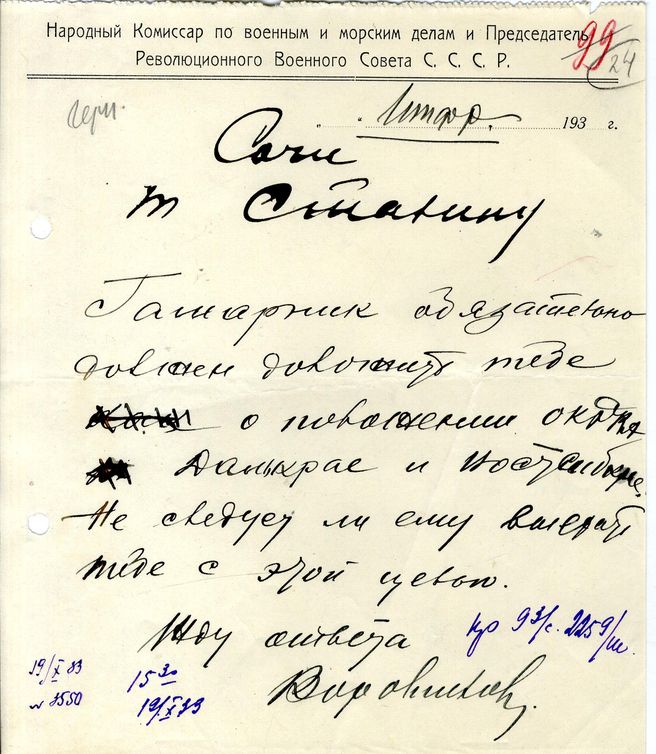 Народный Комиссар по военным и морским делам и Председатель
Революционного Военного Совета С. С. С. Р.
99
24
Шифр. 193 г.
Сочи
т Сталину
Гамарник обязательно
должен доложить тебе
о положении ОКДВА
Далькрае и Востсибкрае.
Не следует ли ему выехать
тебе с этой целью.
Жду ответа
Ворошилов.
19/X 33
15 30
19/X 33